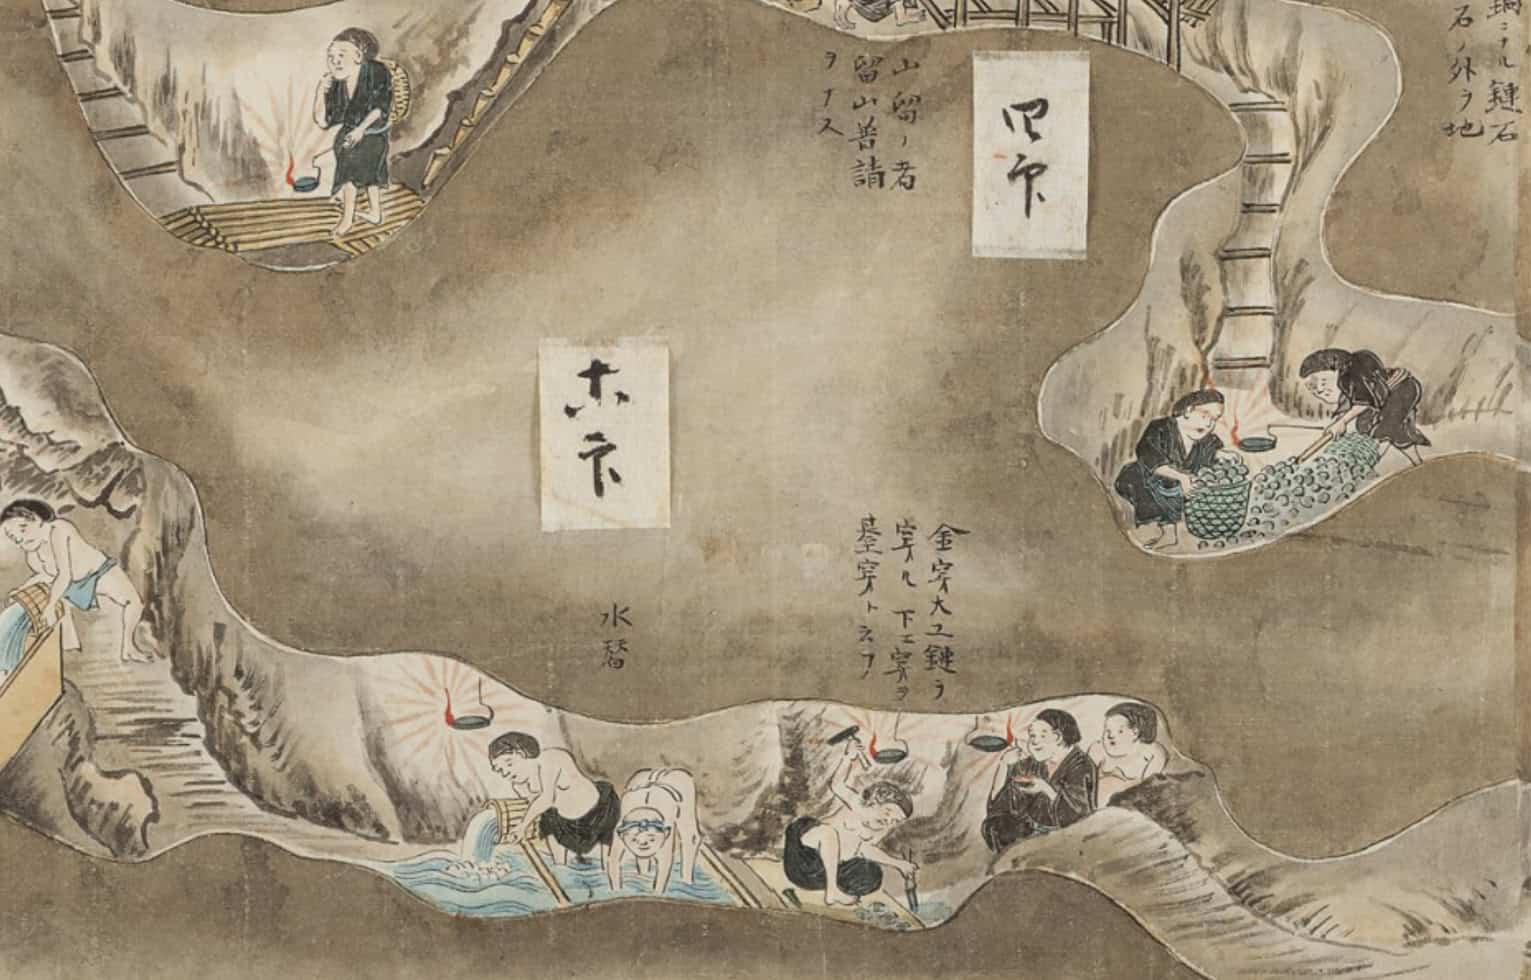 ニナル鏈石
石ノ外ヲ地
山留ノ者
留山普請
ヲナス
金穿大工鏈ヲ
穿ル下エ穿ヲ
穿ト云フ
水替